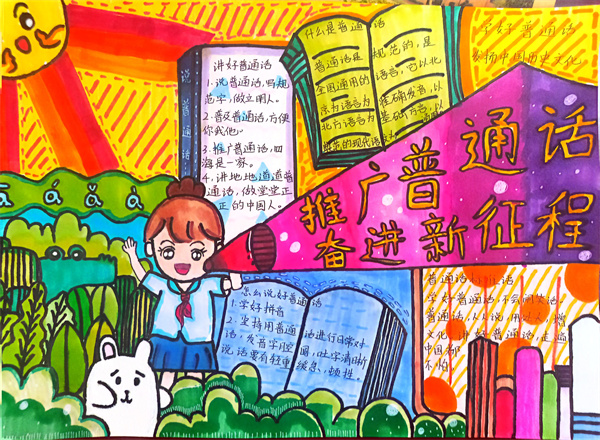 讲好普通话
1.说普通话,写规
范字,做文明人。
2.普及普通话,方便
你我他。
3.推广普通话,四
海是一家。
4.讲地地道道普
通话,做堂堂正
正的中国人。
说普通话
什么是普通话
普通话是
全国通用的
京为语言为
北方语言为
规范的,是
语言,它以北
准确发音,以
基础方言,以
学好普通话
发扬中国历史文化
推广普通话
奋进新征程
ā á ǎ à
怎么说好普通话
1.学好拼音
2.坚持用普通话进行日常对
话,发音字腔圆,吐字清晰
说话要有轻重缓急,顿挫。
普通话
学好普通话,不会闹笑话。
普通话,人人说,用让人,增
文化,讲好普通话,走遍
中国都
不怕